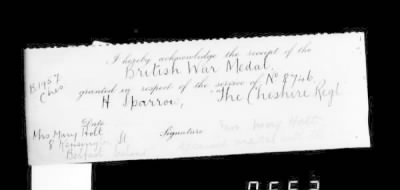 I hereby acknowledge the receipt of the
British War Medal,
granted in respect of the service of No 8746
H Sparrow, The Cheshire Regt
B.1957
Ches
Date
Signature
Mrs Mary Holt
8 Kensington St